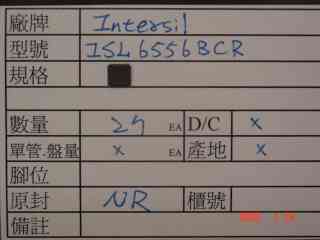 廠牌 Intersil
型號 ISL6556BCR
規格
數量 EA D/C x
單管.盤量 x EA 產地 x
腳位
原封 NR 櫃號
備註